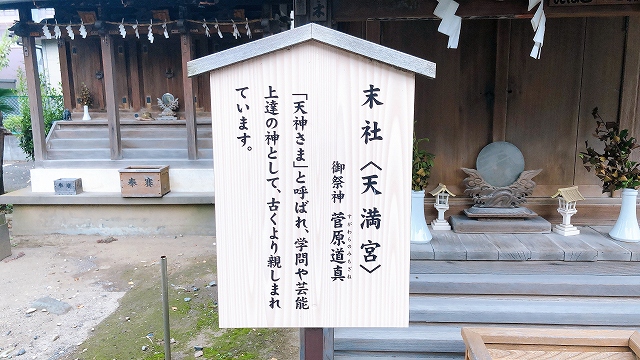 末社〈天満宮〉
御祭神 菅原道真
すがわらのみちざね
「天神さま」と呼ばれ、学問や芸能
上達の神として、古くより親しまれ
ています。
奉賽